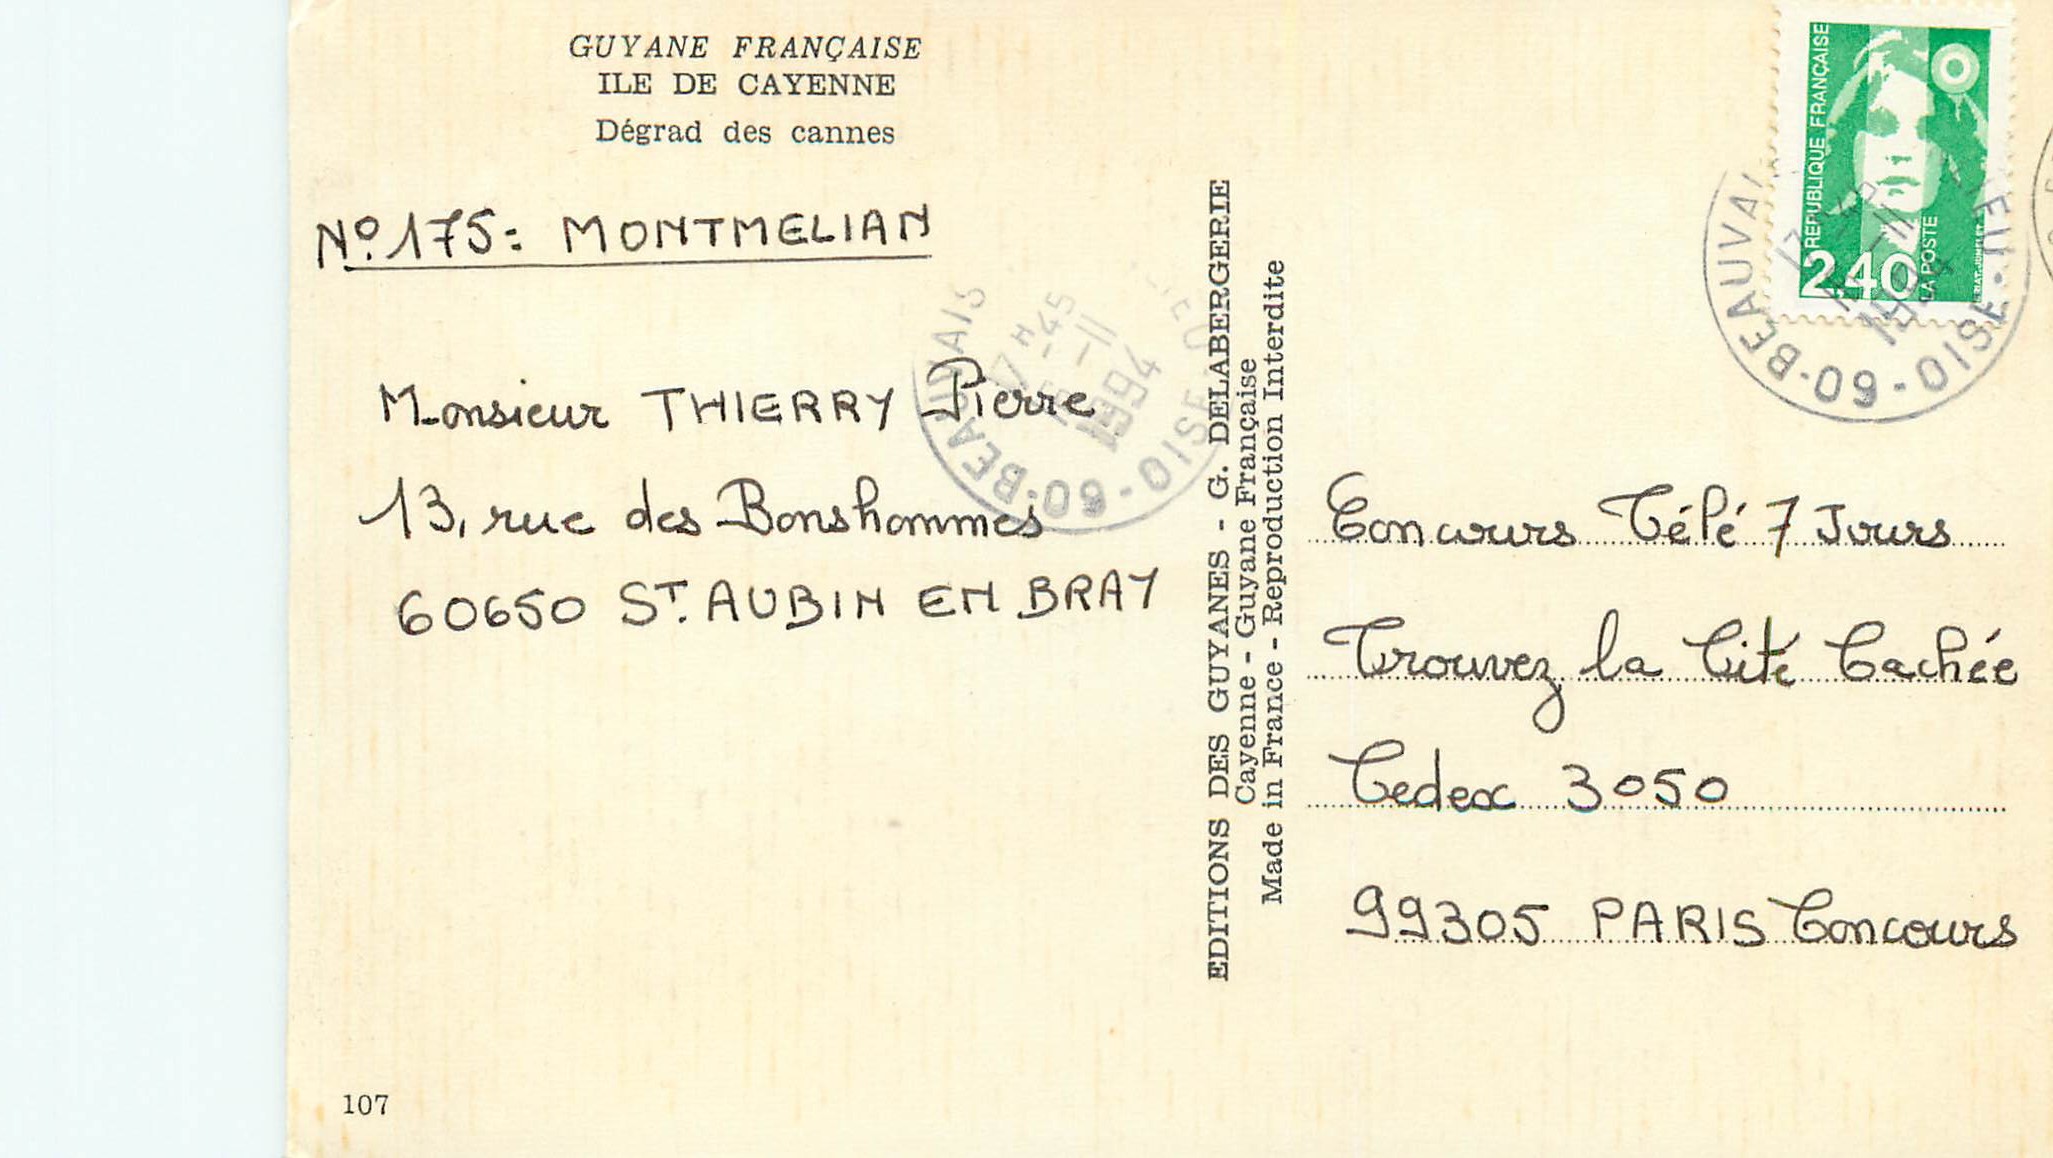 GUYANE FRANÇAISE
ILE DE CAYENNE
Dégrad des cannes
Nº.175: MONTMELIAN
Monsieur THIERRY Pierre
13, rue des Bonshommes
60650 ST. AUBIN EN BRAY
107
EDITIONS DES GUYANES - G. DELABERGERIE
Cayenne - Guyane Française
Made in France - Reproduction Interdite
REPUBLIQUE FRANÇAISE
2,40
LA POSTE
BEAUVAIS
17H45
1994
60 - OISE
60 - OISE
Concours Télé 7 Jours
Trouvez la Cité Cachée
Cedex 3050
99305 PARIS Concours